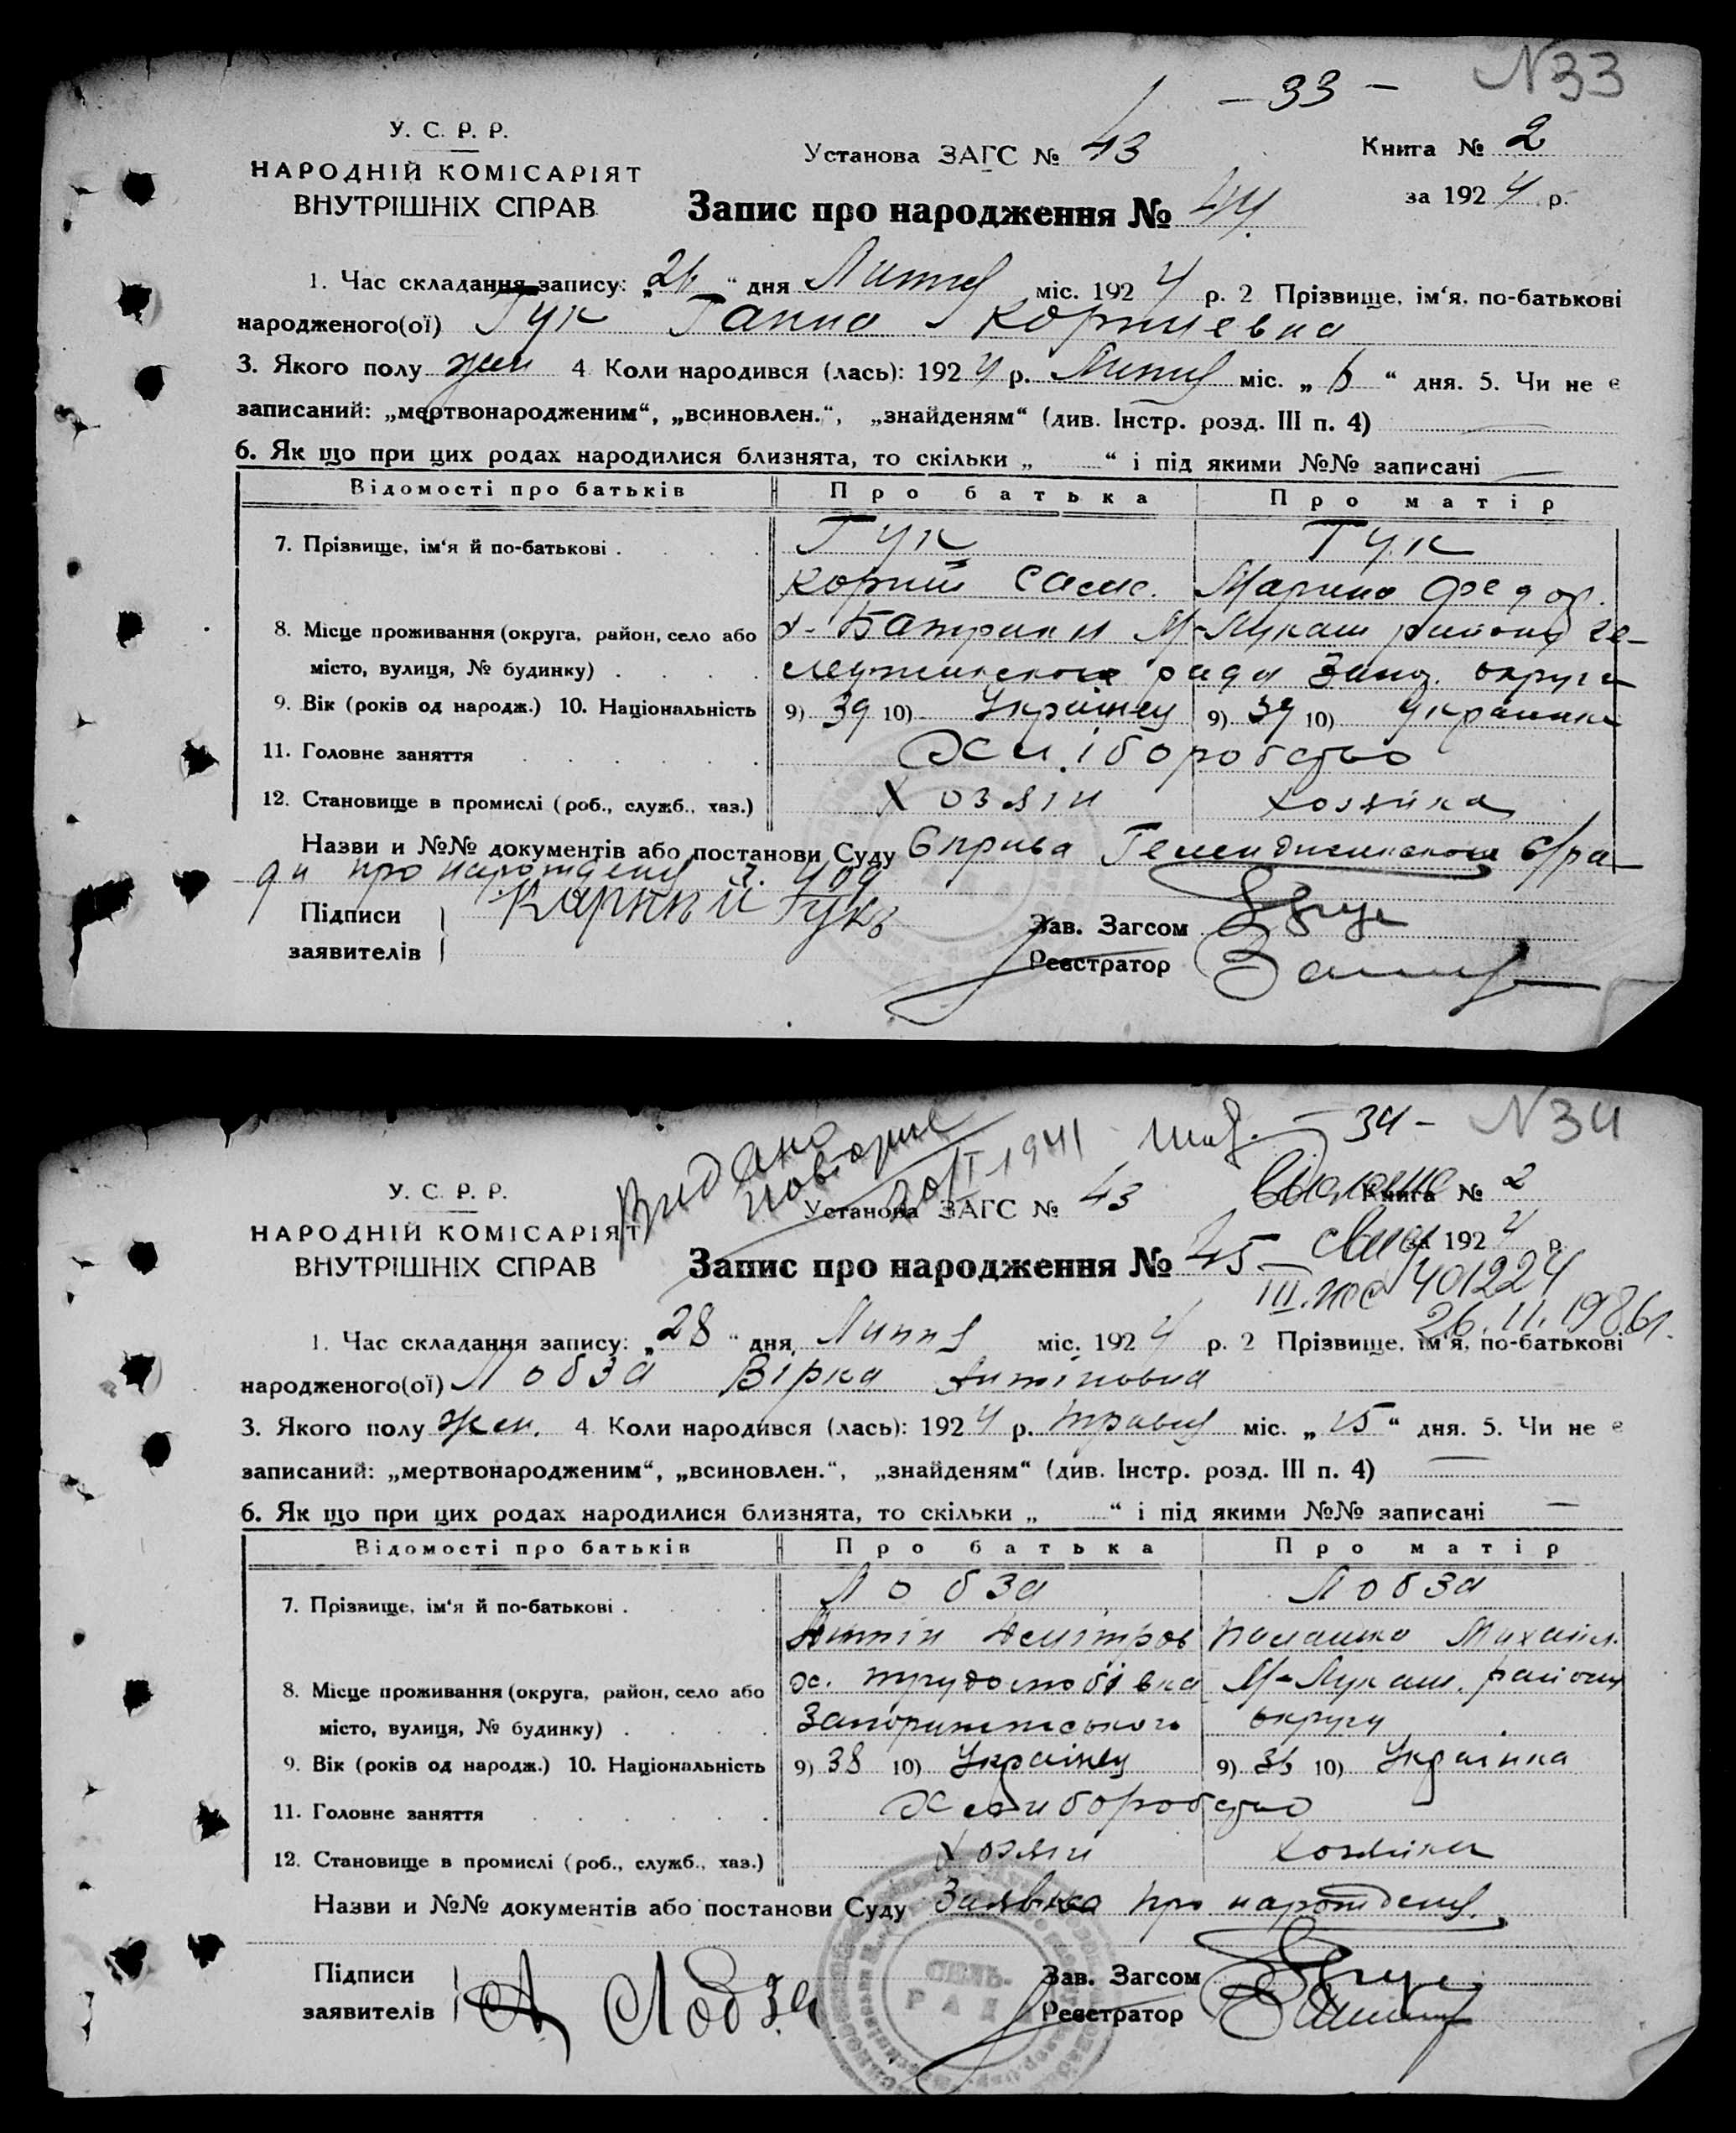 N33
- 33 -
У. С. Р. Р.
НАРОДНІЙ КОМІСАРІЯТ
ВНУТРІШНІХ СПРАВ
Установа ЗАГС № 43
Книга № 2
за 1924 р.
Запис про народження № 44
1. Час складання запису: „26“ дня Липня міс. 1924 р. 2 Прізвище, ім‘я, по-батькові
народженого(ої) Гук Ганна Корніевна
3. Якого полу жен 4 Коли народився (лась): 1924 р. Липня міс. „6“ дня. 5. Чи не є
записаний: „мертвонародженим“, „всиновлен.“, „знайденям“ (див. Інстр. розд. III п. 4)
6. Як що при цих родах народилися близнята, то скільки „ “ і під якими №№ записані —
Відомості про батьків Про батька Про матір
7. Прізвище, ім‘я й по-батькові . Гук Гук
Корній Марина Федор.
8. Місце проживання (округа, район, село або М-Лукаш району
місто, вулиця, № будинку) ради Запоз. округи
9. Вік (років од народж.) 10. Національність 9) 39 10) Українец 9) 39 10) Украинка
11. Головне заняття Хліборобство
12. Становище в промислі (роб., служб., хаз.) Хозяін хозяйка
Назви и №№ документів або постанови Суду с/ра-
ди про народжения
Підписи
заявителів
Корнпй Гукъ
Зав. Загсом
Реєстратор
N34
- 34 -
Видано
повторне
20/I-1941
У. С. Р. Р.
НАРОДНІЙ КОМІСАРІЯТ
ВНУТРІШНІХ СПРАВ
Установа ЗАГС № 43
Книга № 2
за 1924 р.
Запис про народження № 45
свид
III. жс 401224
26. 11. 1986г.
1. Час складання запису: „28“ дня Липня міс. 1924 р. 2 Прізвище, ім‘я, по-батькові
народженого(ої) Лобза Вірка Антіповна
3. Якого полу жен. 4 Коли народився (лась): 1924 р. травня міс. „15“ дня. 5. Чи не є
записаний: „мертвонародженим“, „всиновлен.“, „знайденям“ (див. Інстр. розд. III п. 4) —
6. Як що при цих родах народилися близнята, то скільки „ “ і під якими №№ записані —
Відомості про батьків Про батька Про матір
7. Прізвище, ім‘я й по-батькові . Лобза Лобза
Антіп Дмітров Михайл.
8. Місце проживання (округа, район, село або х. трудолюбівка М-Лукаш. району
місто, вулиця, № будинку) Запорижського округу
9. Вік (років од народж.) 10. Національність 9) 38 10) Українец 9) 36 10) Українка
11. Головне заняття Хлиборобство
12. Становище в промислі (роб., служб., хаз.) Хозяін хозяйка
Назви и №№ документів або постанови Суду Заявка про народженя
Підписи
заявителів
А Лобза
СІЛЬ-
РАДА
Зав. Загсом
Реєстратор